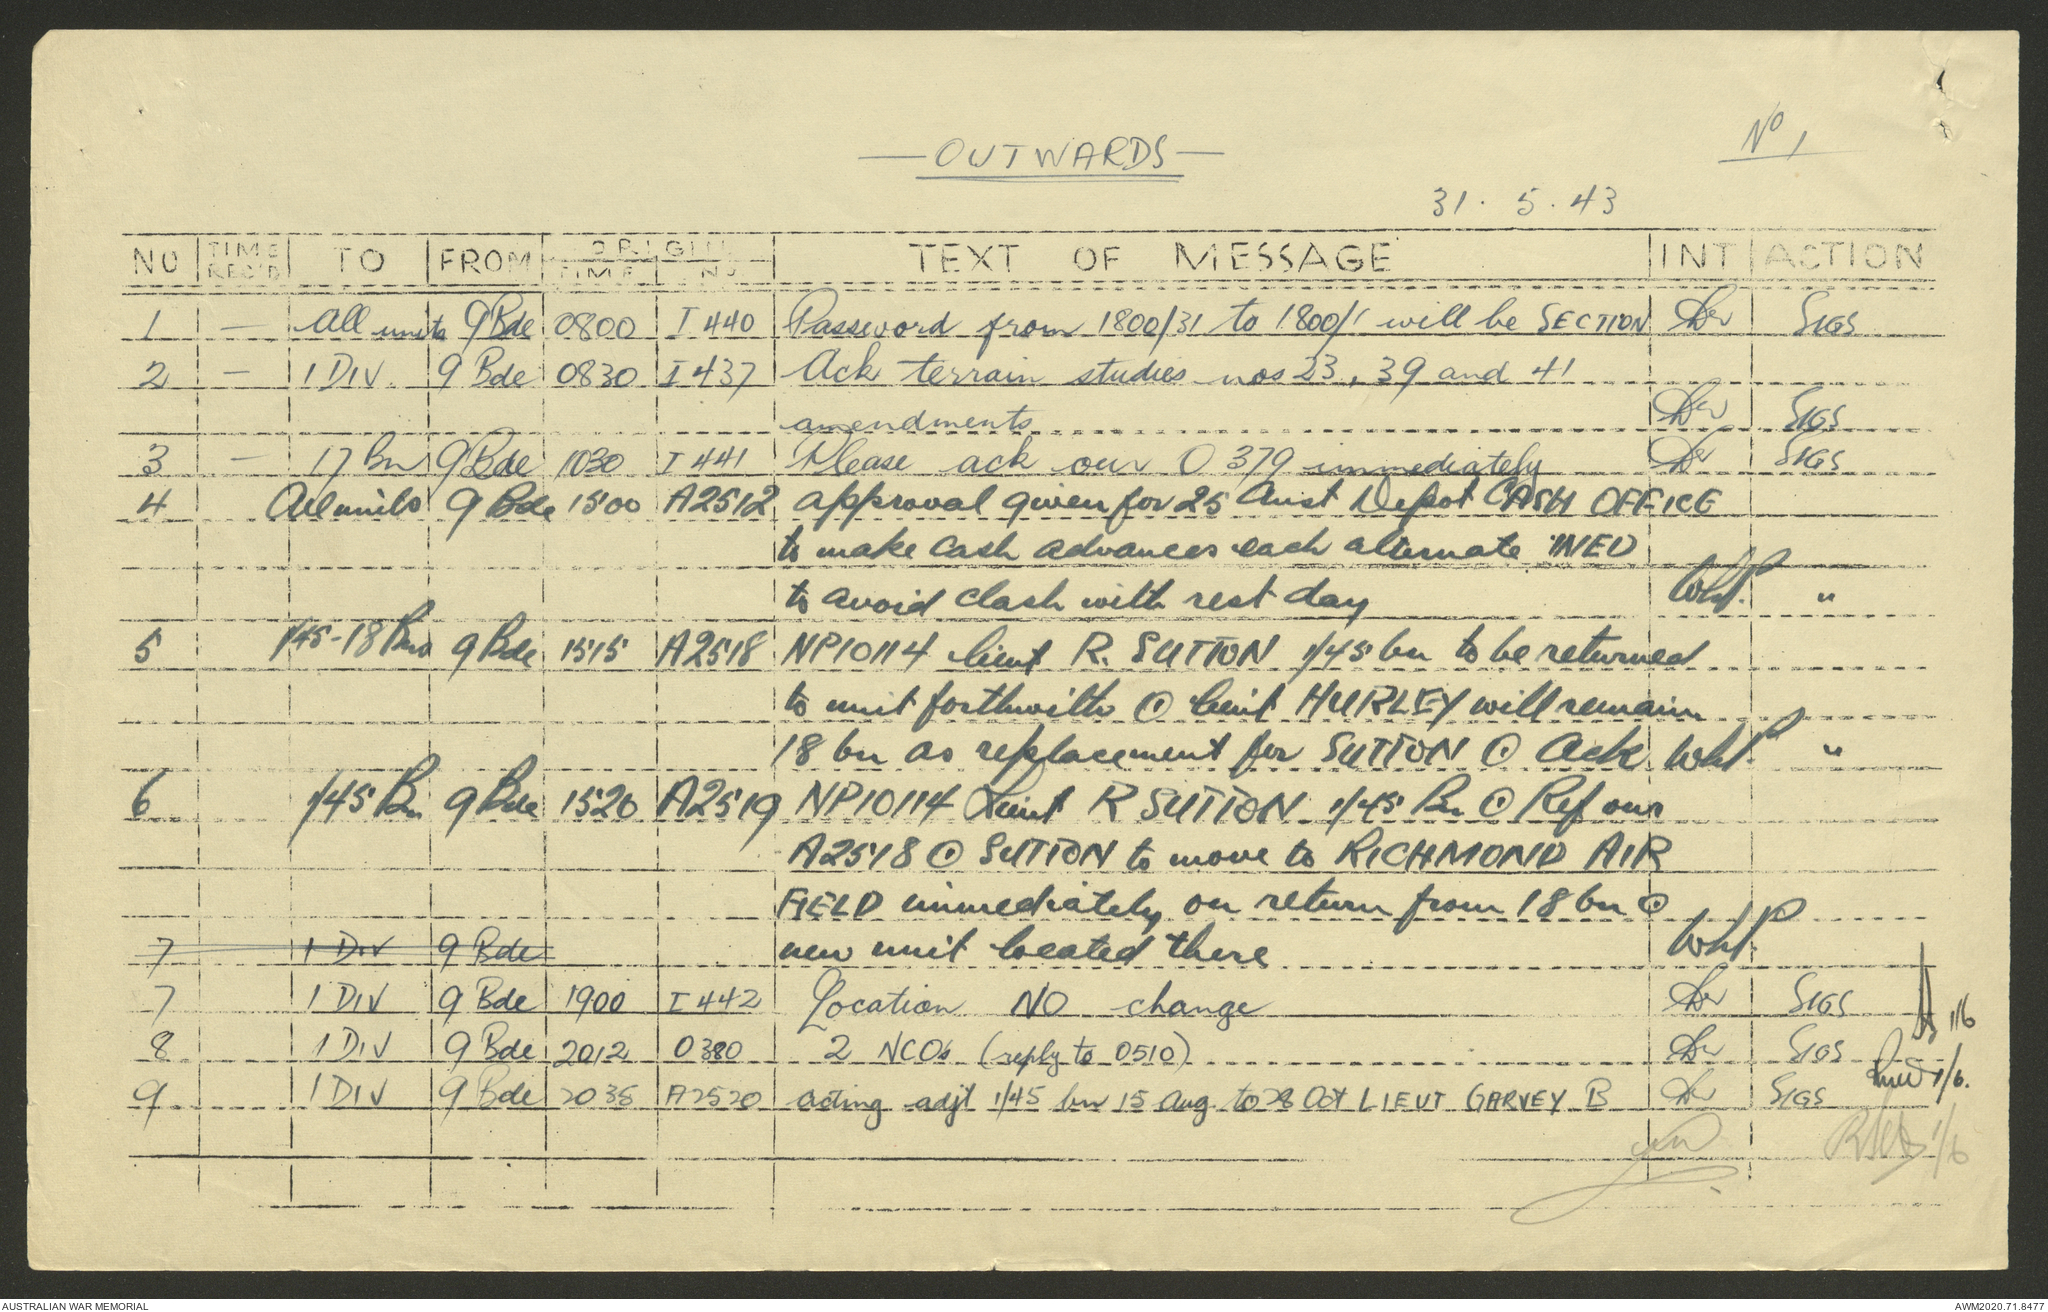 No 1
— OUTWARDS —
31.5.43
NO TIME REC'D TO FROM ORIGIN TIME NO. TEXT OF MESSAGE INT ACTION
1 — All units 9 Bde 0800 I 440 Password from 1800/31 to 1800/1 will be SECTION SIGS
2 — 1 DIV. 9 Bde 0830 I 437 Ack terrain studies nos 23, 39 and 41
amendments SIGS
3 — 17 Bn 9 Bde 1030 I 441 Please ack our O 379 immediately SIGS
4 All units 9 Bde 1500 A2512 approval given for 25 Aust Depot CASH OFFICE
to make cash advances each alternate WED
to avoid clash with rest day WhP. "
5 1/45-18 Bns 9 Bde 1515 A2518 NP10114 Lieut R. SUTTON 1/45 bn to be returned
to unit forthwith ⊙ Lieut HURLEY will remain
18 bn as replacement for SUTTON ⊙ Ack WhP. "
6 1/45 Bn 9 Bde 1520 A2519 NP10114 Lieut R SUTTON 1/45 Bn ⊙ Ref our
A2518 ⊙ SUTTON to move to RICHMOND AIR
FIELD immediately on return from 18 bn ⊙
7 1 DIV 9 Bde new unit located there WhP.
7 1 DIV 9 Bde 1900 I 442 Location NO change SIGS
8 1 DIV 9 Bde 2012 O380 2 NCOs (reply to O510) SIGS
9 1 DIV 9 Bde 2035 A2520 acting adjt 1/45 bn 15 Aug to 28 Oct LIEUT GARVEY B SIGS
1/6
1/6.
1/6
AUSTRALIAN WAR MEMORIAL
AWM2020.71.8477